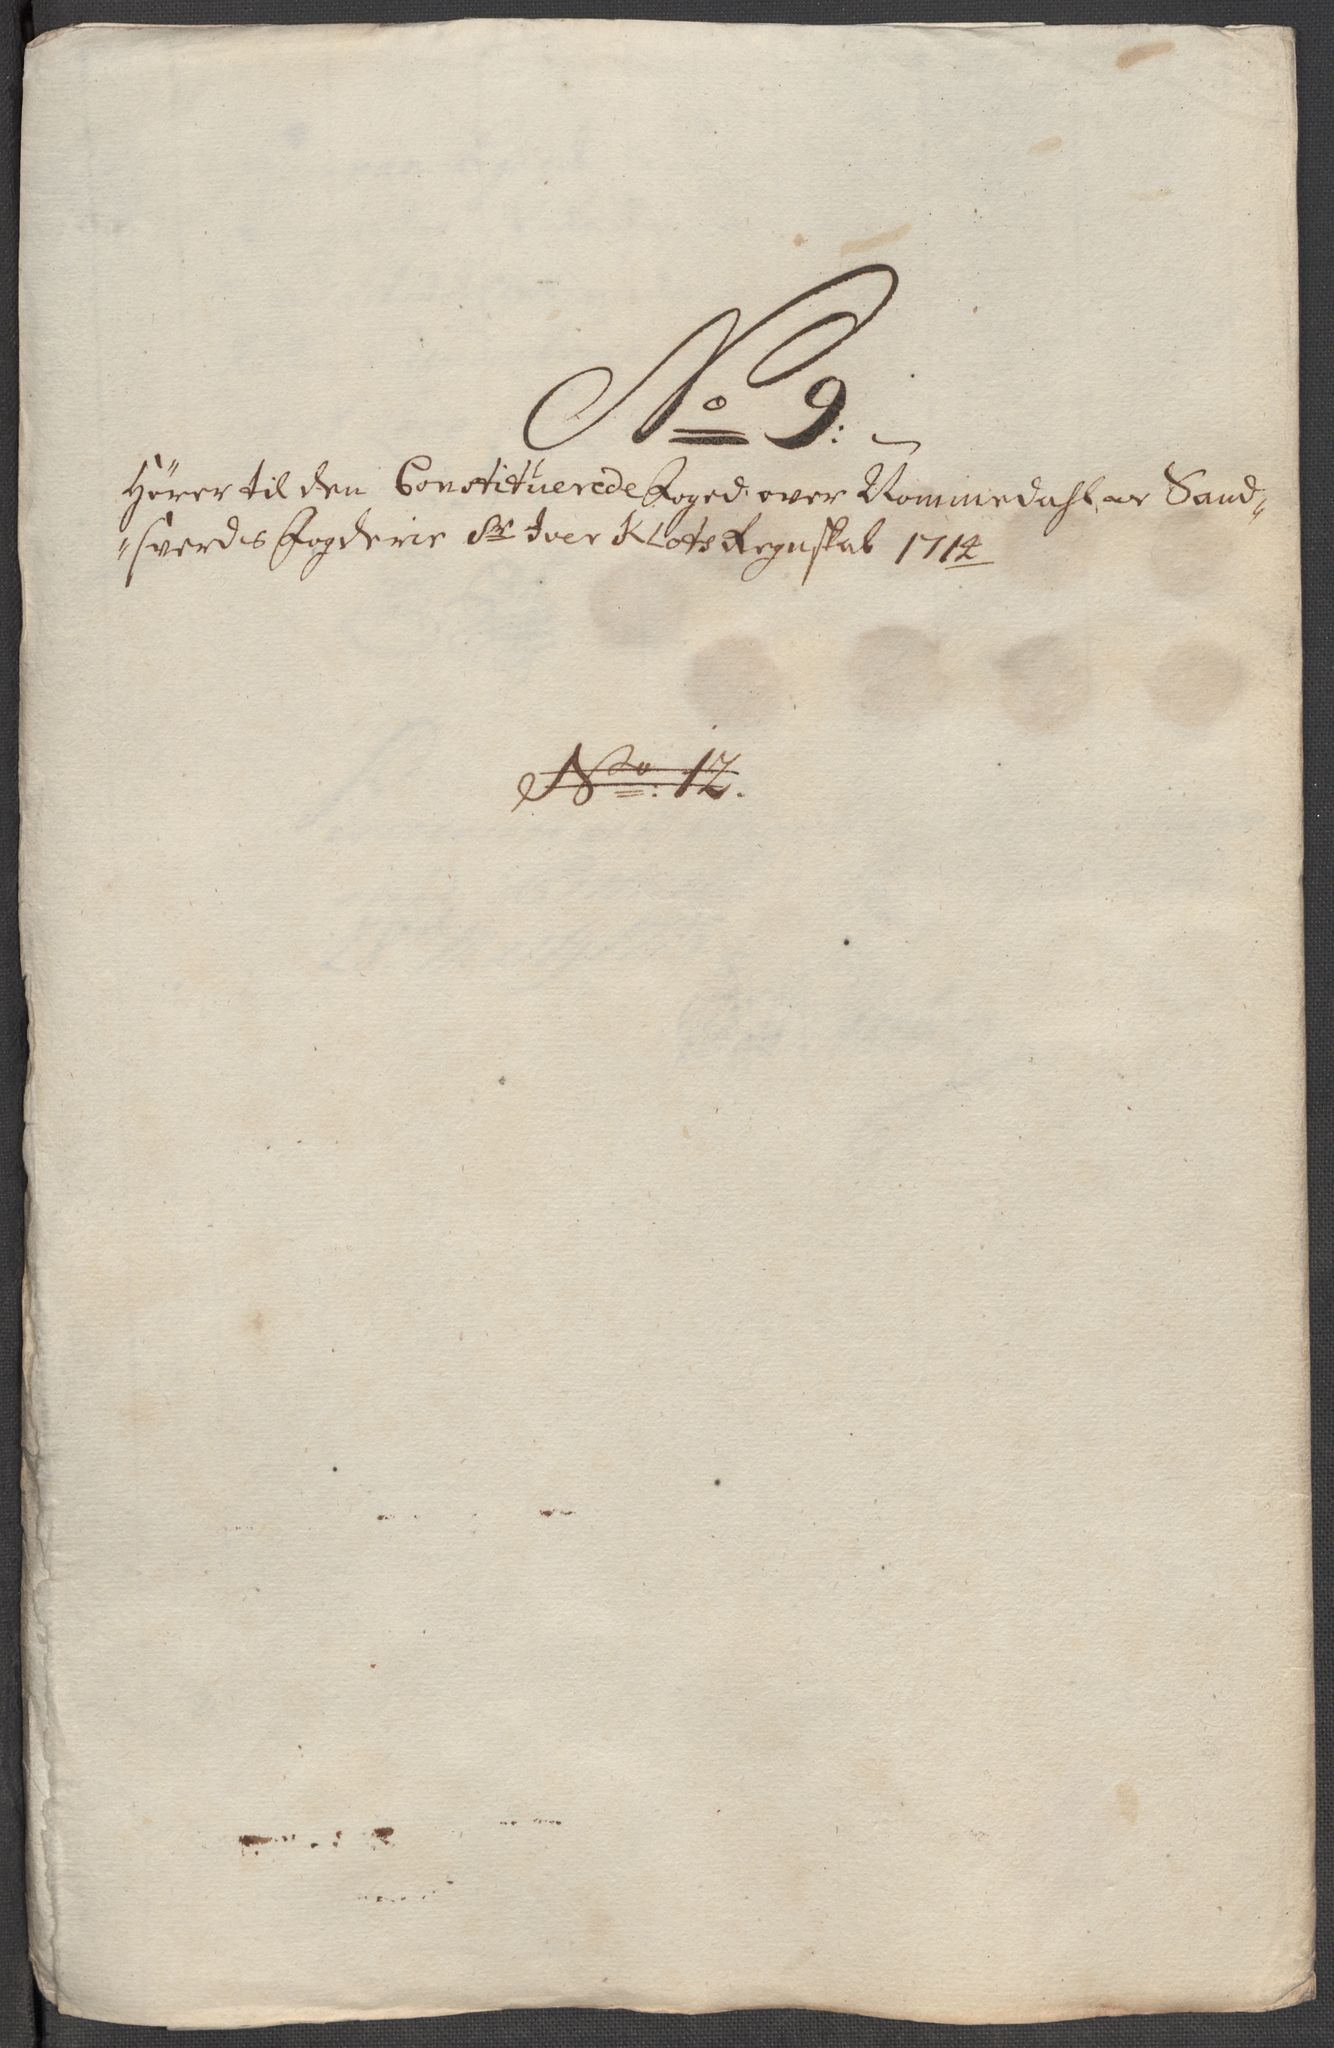 No 9:
Hörer til den Constituerede Foged over Nommedahl, oc Sand„
„sverds Fogderie Sr Iver Klots Regnskab 1714
No: 12.